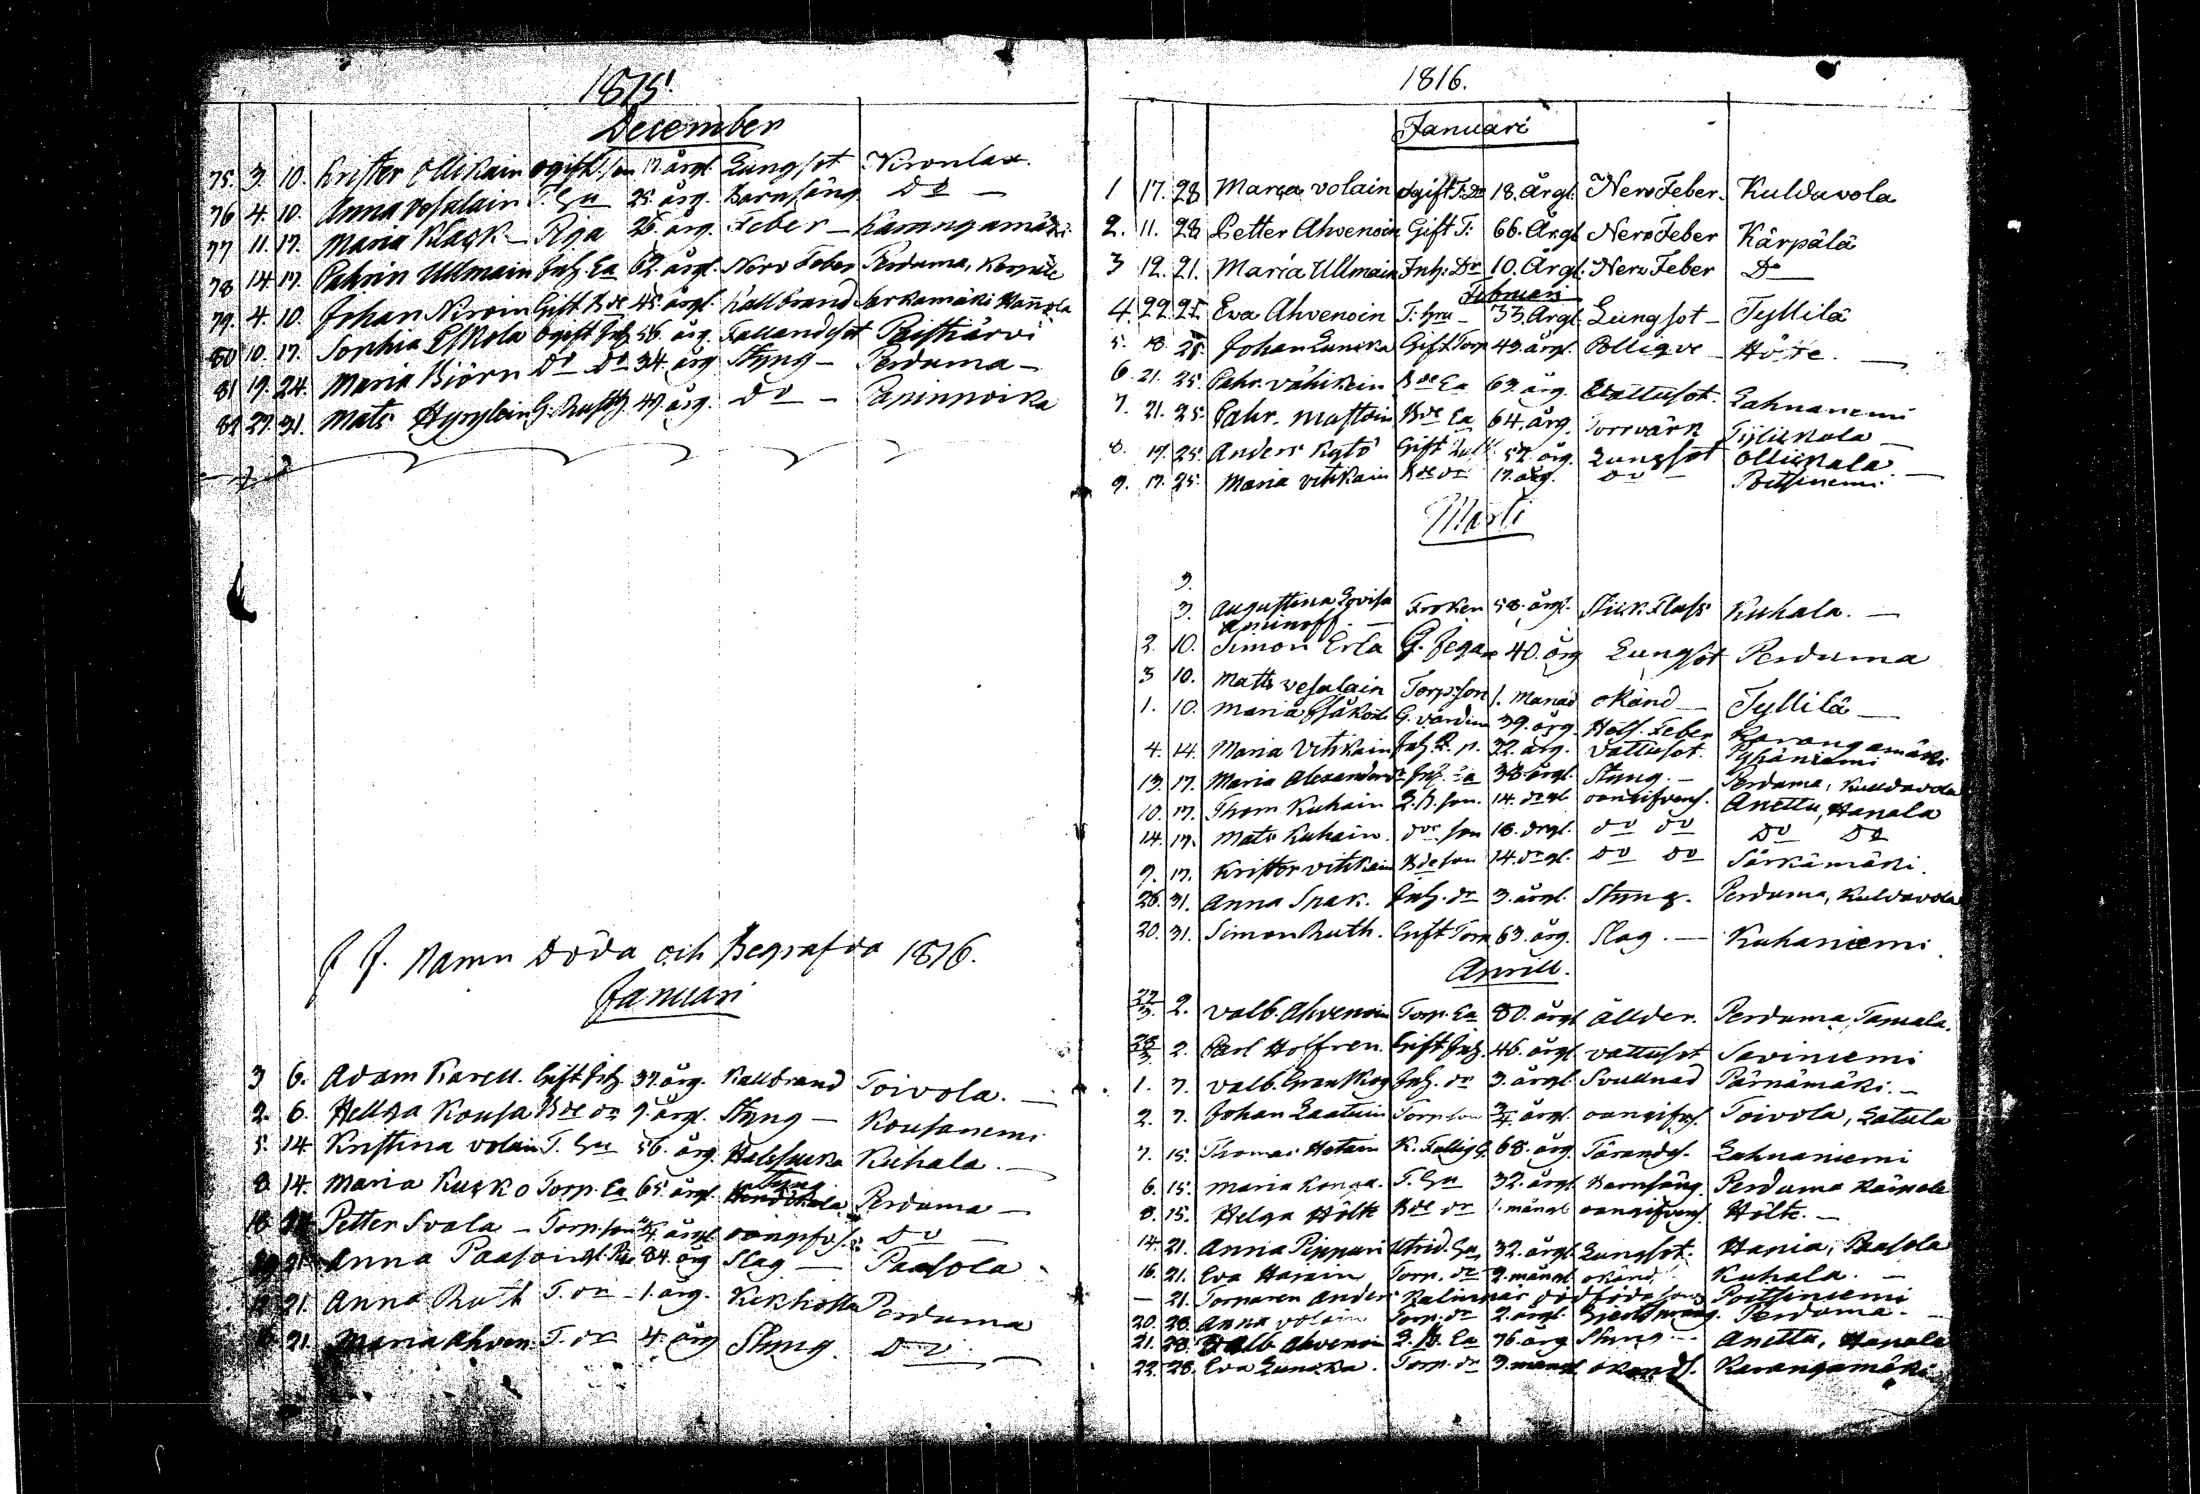 1815.
December
75. 3. 10. Krister Ollikain ogift T. son 17 årgl. Lungsot Kronlax.
76 4. 10. Anna Vesalain T. Hu 25. årg. Barnsäng Do —
77 11. 17. Maria Klask — Pga 26. årg. Feber — Karangamäki
78 14 17. Cahrin Ullmain Inh. Ea 62. årgl. Nerv Feber Perduma,
79. 4. 10. Johan Niroin Gift Bde 45. årgl. Kallbrand Särkämäki Hanola
80 10. 17. Sophia Eskola Ogift Inh 58. årg. Fallandesot Paistjärvi
81 19. 24. Maria Björn Do Do 34. årg Styng — Perduma —
82 27. 31. Mats Hyrylain G. 47. årg. Do — Papinnoika
J J. Namn döda och Begrafda 1816.
Januari
3 6. Adam Karell. Gift Inh. 37. årg. Kallbrand Toivola. —
2. 6. Hellga Kousa Bde dr 9. årgl. Styng — Kousanemi
5. 14. Kristina Volain T. Hu 56. årg. Halssjuka Kuhala. —
8. 14. Maria Kusko Torp. Ea 65. årgl. Styng Perduma —
18. Petter Svala — Torp. son ¾ årgl. Do —
21. Anna Paasoin 84. årg Slag — Paasola
21. Anna Ruth T. dr — 1. årg. Kikhosta Perduma
21. Maria Ahven T. dr 4. årg Styng. Do —
1816.
Januari
1 17. 28 Maria Volain ogift T. Dr 18. Årgl. Nerv Feber. Kuldavola
2. 11. 28 Petter Ahvenoin Gift T: 66. Årgl Nerv Feber Kärpälä
3 12. 21. Maria Ullmain Inh: Dr 10. Årgl. Nerv Feber Do —
Februari
4. 22. 25. Eva Ahvenoin T: Hru — 33. Årgl. Lungsot — Tyllilä
5. 18. 25. Johan Lunska Gift Torp 43. årgl. Bolligve — Höte. —
6. 21. 25. Cahr. Vähikain Bde Ea 63. årg. Vattusot. Lahnanemi
7. 21. 25. Cahr. Mustoin Bde Ea 64. årg. Torrvärk Tyllikala —
8. 17. 25. Anders Kytö Gift 57. årg. Lungsot Ollikkala
9. 17. 25. Maria Vitikain Bde dr 17. årg. Do — Poitsinemi. —
Marti
3.
3. Augustina Lovisa Aminoff. — Fröken 58. årgl. Stick. Fluss Kuhala. —
2. 10. Simon Erla G. Jegar 40. årg Lungsot Perduma
3 10. Matts Vesalain Torp. son 1. Månad okänd — Tyllilä —
1. 10. Maria G. värdin 39. årg. Hets. Feber Karangamäki
4. 14. Maria Vitikain Inh. 32. årg. Vattusot. Pyhäniemi
13. 17. Maria Alexandersdr Inh. Ea 38. årgl. Styng. — Perduma, Kuldavola
10. 17. Thom. Kuhain L. B. son. 14. årgl. oangifvens. Anettu, Hanala
14. 17. Mats Kuhain. dito son 18. årgl. do do Do Do
9. 17. Krister Vitikain Bde son 14. årgl. do do Särkämäki.
26. 31. Anna Snak. Inh. dr 3. årgl. Styng. Perduma, Kuldavola
20. 31. Simon Ruth. Gift Torp 63. årg. Slag. — Kuhaniemi
Aprill.
22/3. 2. Valb. Ahvenoin Torp. Ea 80. årgl ållder. Perduma, Tamala.
2. Carl Hoffren. Gift Inh. 46. årgl. Vattusot Saviniemi
1. 7. Valb. Granskog Inh. dr 3. årgl Svullnad Pärnämäki. —
2. 7. Johan Laatuin Torp son ¾ årgl. oangifvs. Toivola, Latula
7. 15. Thomas Hatain K. Fattigh. 68. årg. Tärandes. Lahnaniemi
6. 15. Maria Konga. T. Hu 32. årgl. Barnsäng. Perduma Käinole
8. 15. Helga Hölte Bde dr 1. mångl oangifvens. Hölte. —
14. 21. Anna Pippuri Utrid. Hu 32. årgl. Lungsot. Hania, Paasola
16. 21. Eva Harain Torp. dr 2. mångl. okänd Kuhala. —
— 21. Torparen Anders dödfödde son Poitsiniemi
20. 28. Anna Volain Torp. dr 2. årgl. Perduma. —
21. 28. Valb. Ahvenoin L. B. Ea 76. årg Styng. — Anettu, Hanala
22. 28. Eva Lunska. Torp. dr 3. mångl okänd. Karangamäki